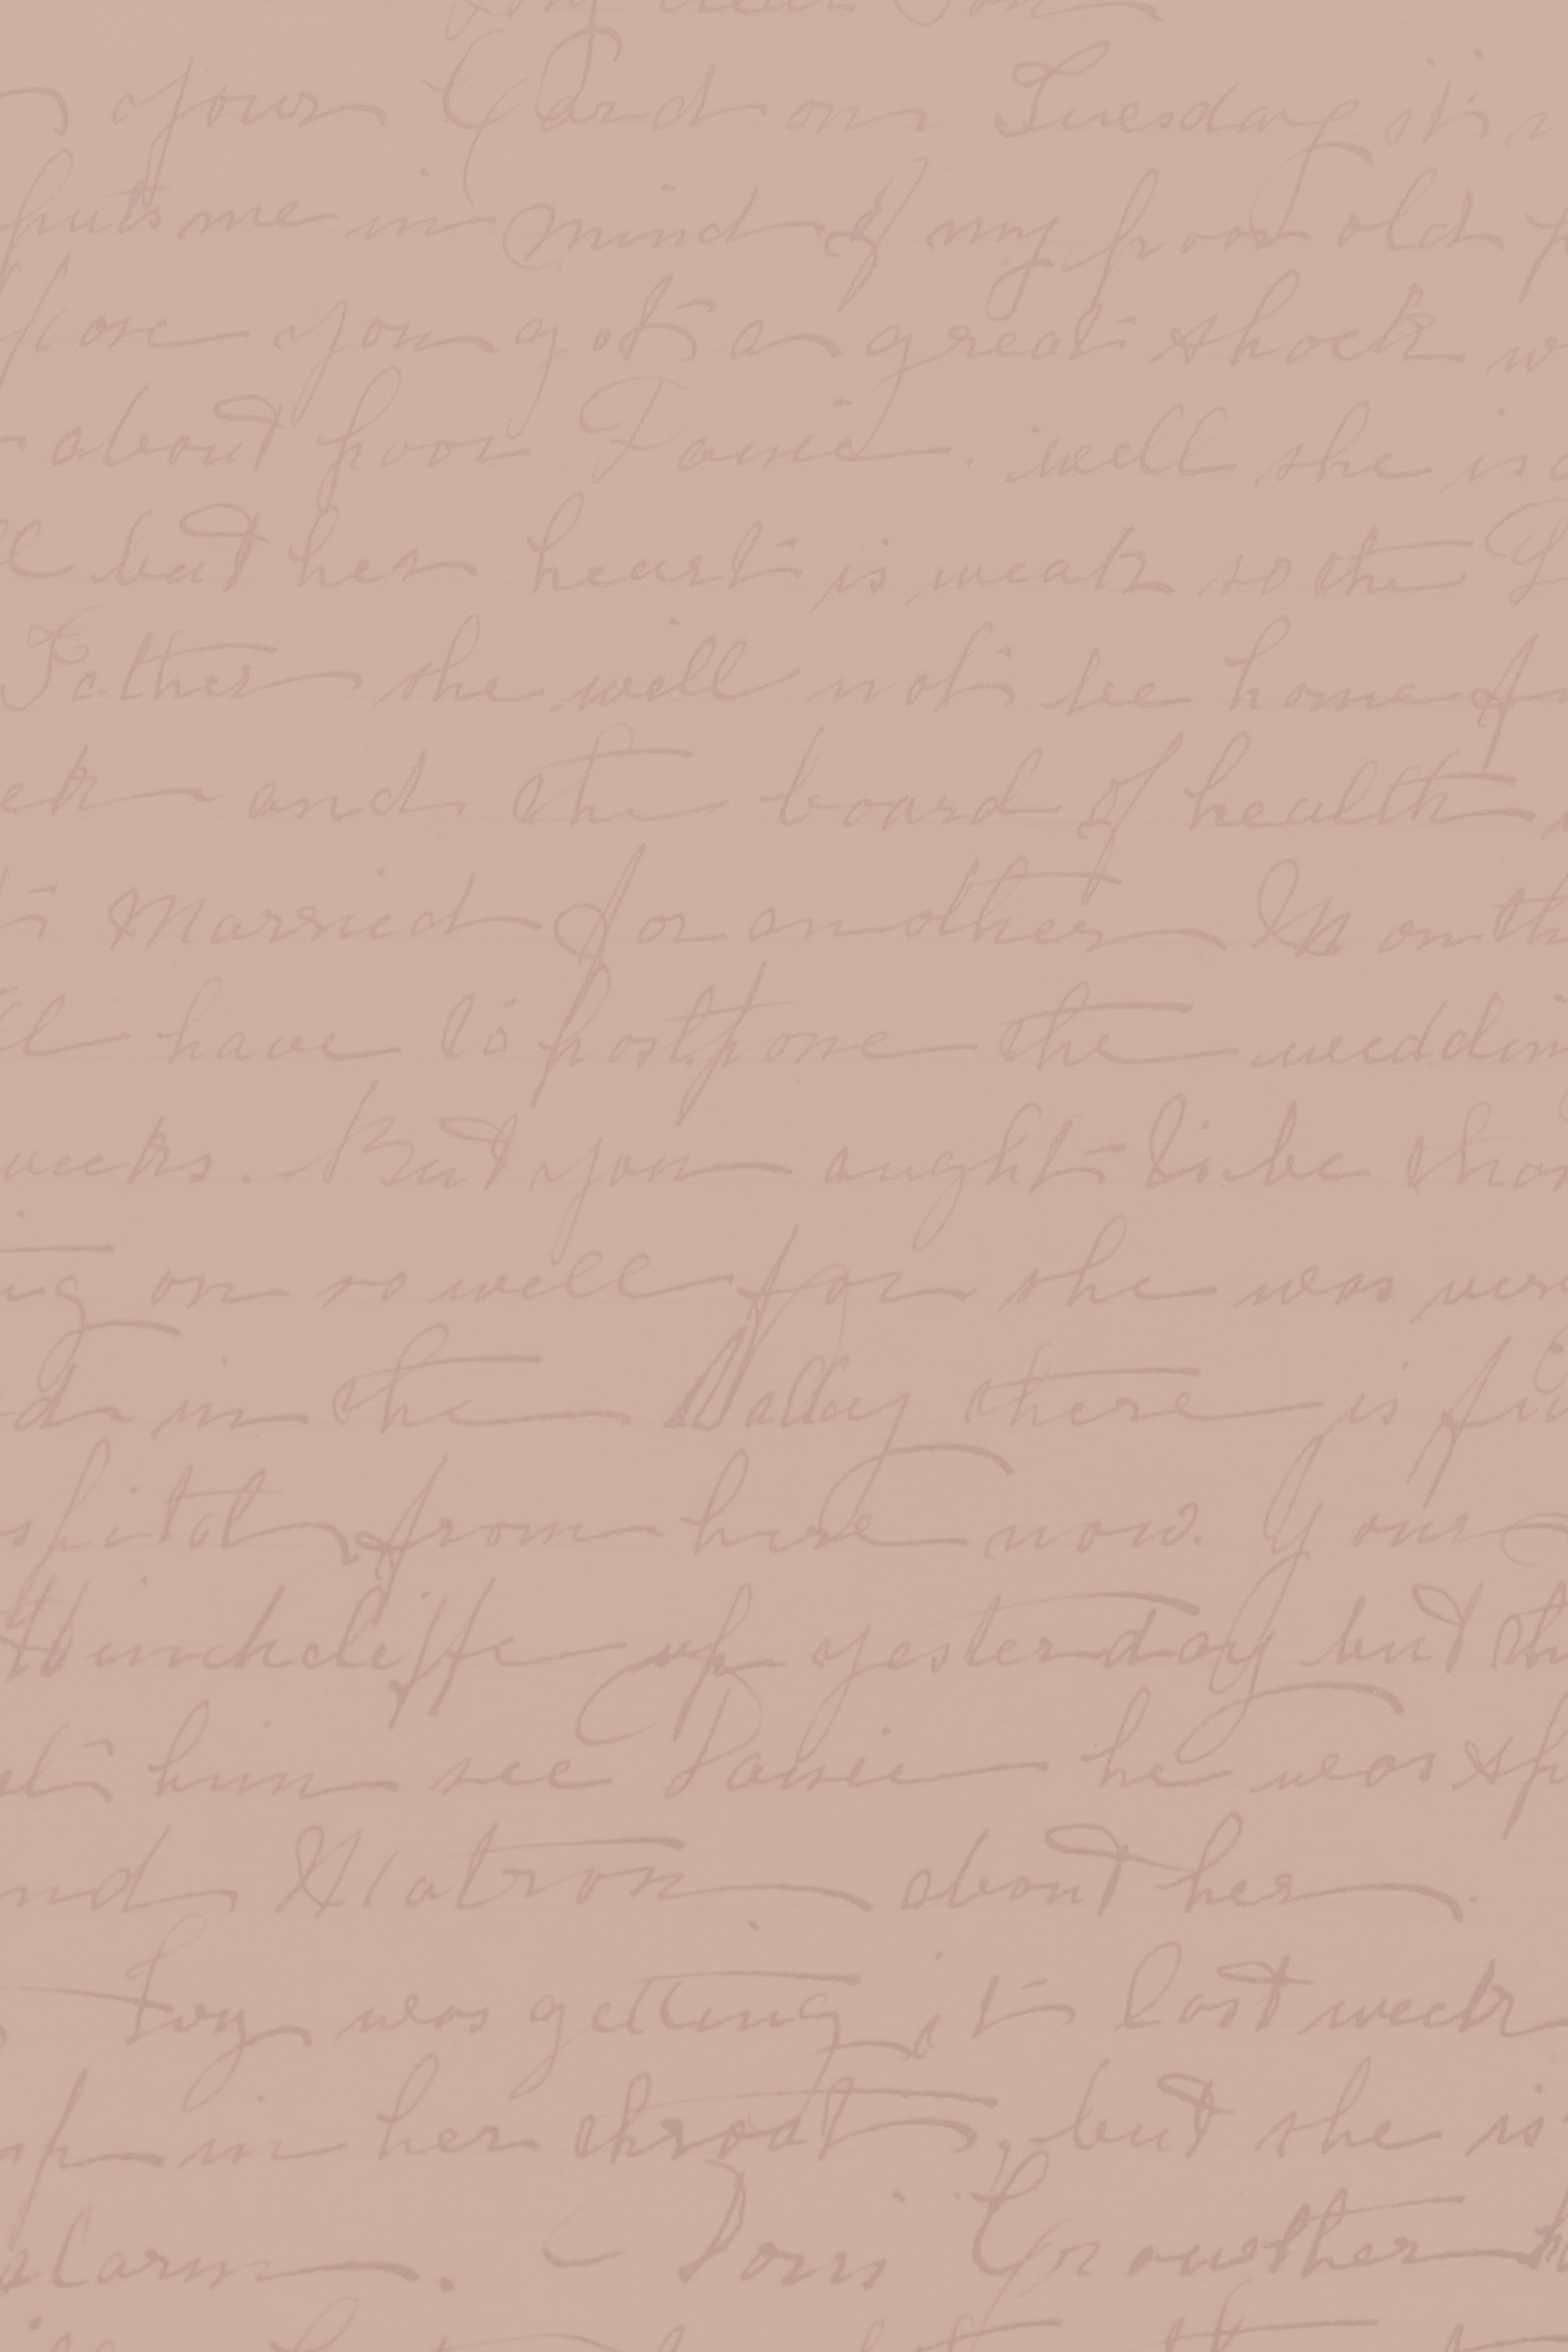 My dear Son
your Card on Tuesday it's
puts me in mind of my poor old
you got a great shock
about poor Janie. well she is
but her heart is weak so the
Father she will not be home
and the board of health
Married for another Month
have to postpone the weddin
weeks. But you ought to be
on so well for she was ver
in the Valley there is
spital from here now. Your
Hinchcliffe up yesterday but th
him see Janie he was sp
nd Matron about her.
Ivy was getting it last week
up in her throat, but she is
alarm. Doris Crowther